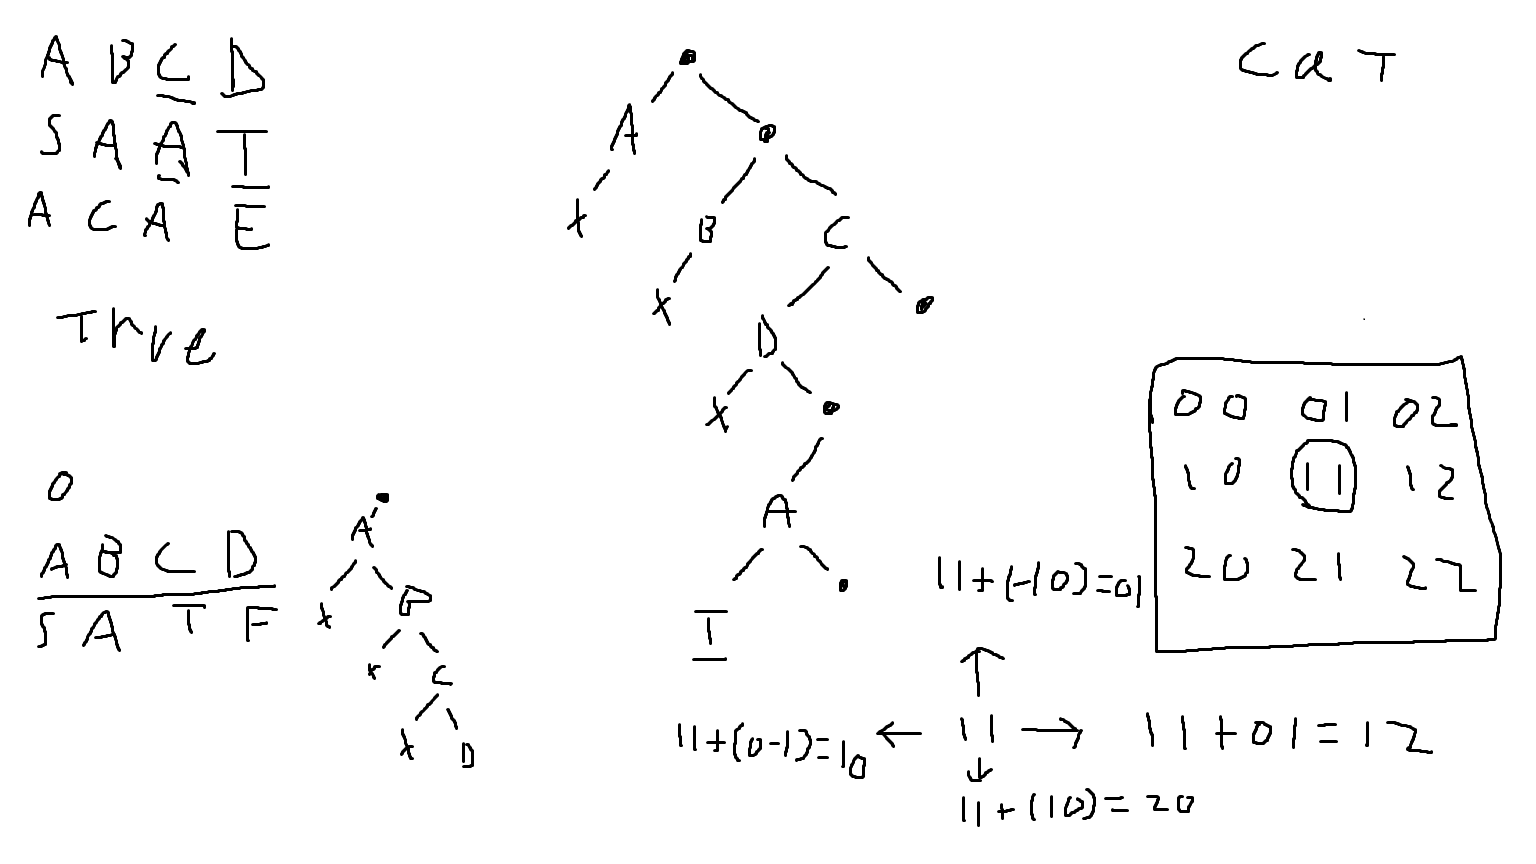 A B C D
S A A T
A C A E
True
O
A B C D
S A T F
A
X
B
X
C
X
D
A
X
B
X
C
D
X
A
T
CaT
00 01 02
10 11 12
20 21 22
11+(-10)=01
11+(0-1)=10 ← 11 → 11+01=12
11+(10)=20